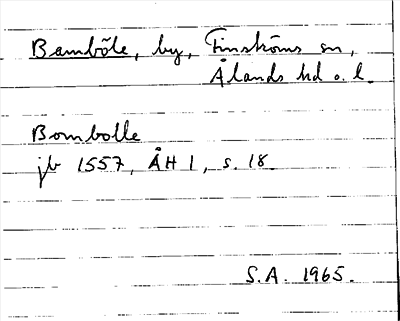 Bamböle, by, Finströms sn,
Ålands hd o. l.
Bombolle
jb 1557, ÅH 1, s. 18.
S.A. 1965.